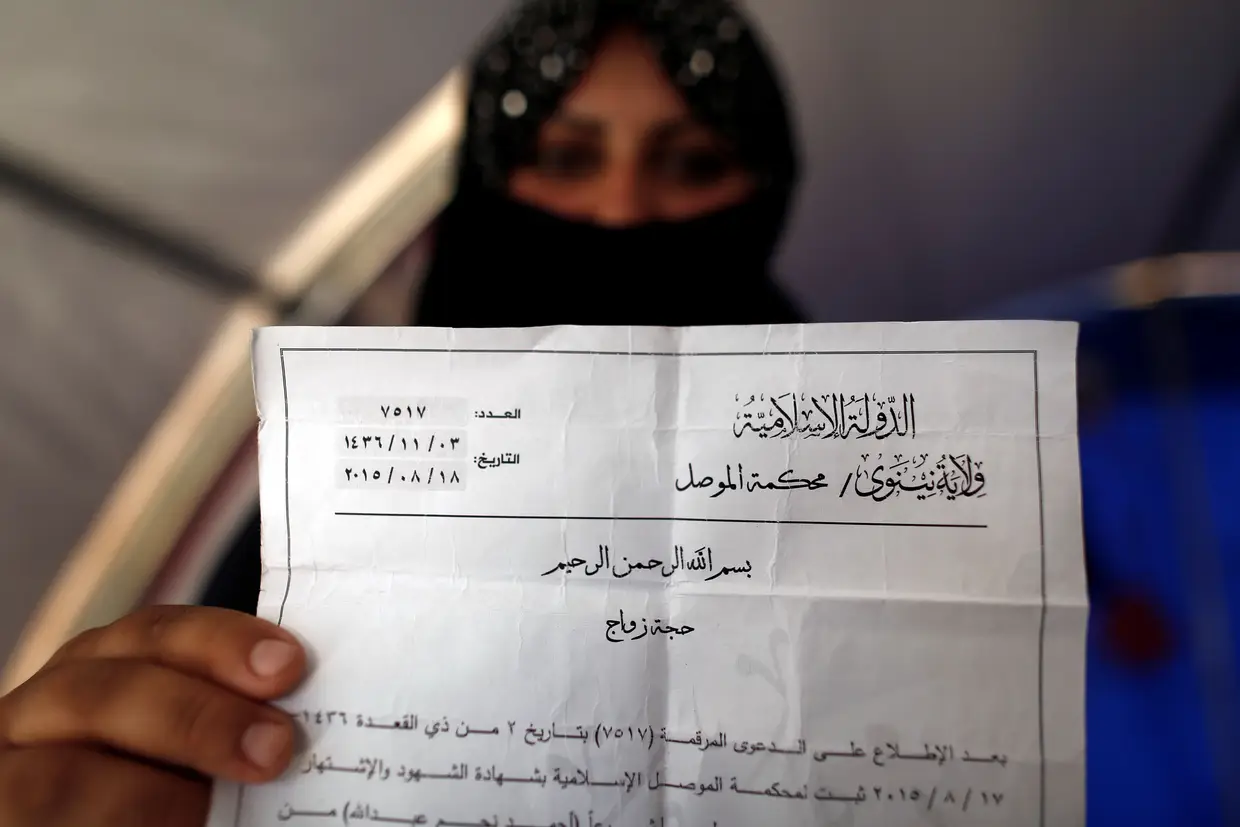 الدولة الإسلامية
ولاية نينوى / محكمة الموصل
العدد: ٧٥١٧
التاريخ: ١٤٣٦/١١/٠٣
٢٠١٥/٠٨/١٨
بسم الله الرحمن الرحيم
حجة زواج
بعد الإطلاع على الدعوى المرقمة (٧٥١٧) بتاريخ ٢ من ذي القعدة ١٤٣٦
١٧ / ٨ / ٢٠١٥ ثبت لمحكمة الموصل الإسلامية بشهادة الشهود والإشتهار
(أحمد نجم عبدالله) من